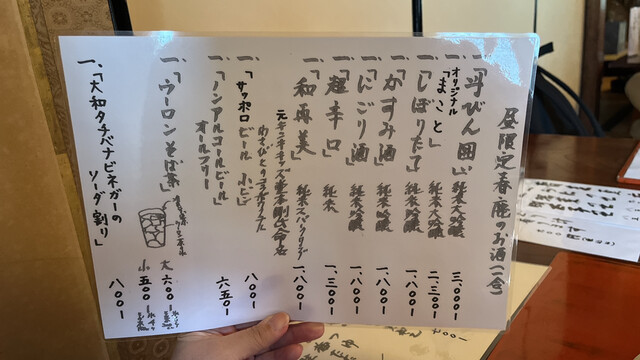 昼限定春鹿のお酒(一合)
一、「斗びん囲い」純米大吟醸 三、〇〇〇-
一、オリジナル「まこと」純米大吟醸 二、三〇〇-
一、「しぼりたて」純米吟醸 一、八〇〇-
一、「かすみ酒」純米吟醸 一、八〇〇-
一、「にごり酒」純米吟醸 一、八〇〇-
一、「超辛口」純米 一、三〇〇-
一、「和再美」純米スパークリング 一、八〇〇-
元キンキキッズ堂本剛氏命名
一、「サッポロビール 小ビン 八〇〇-
一、「ノンアルコールビール」
オールフリー 六五〇-
一、「ウーロンそば茶」
大 六〇〇-
小 五〇〇-
一、「大和タチバナビネガーの
ソーダ割り」 八〇〇-